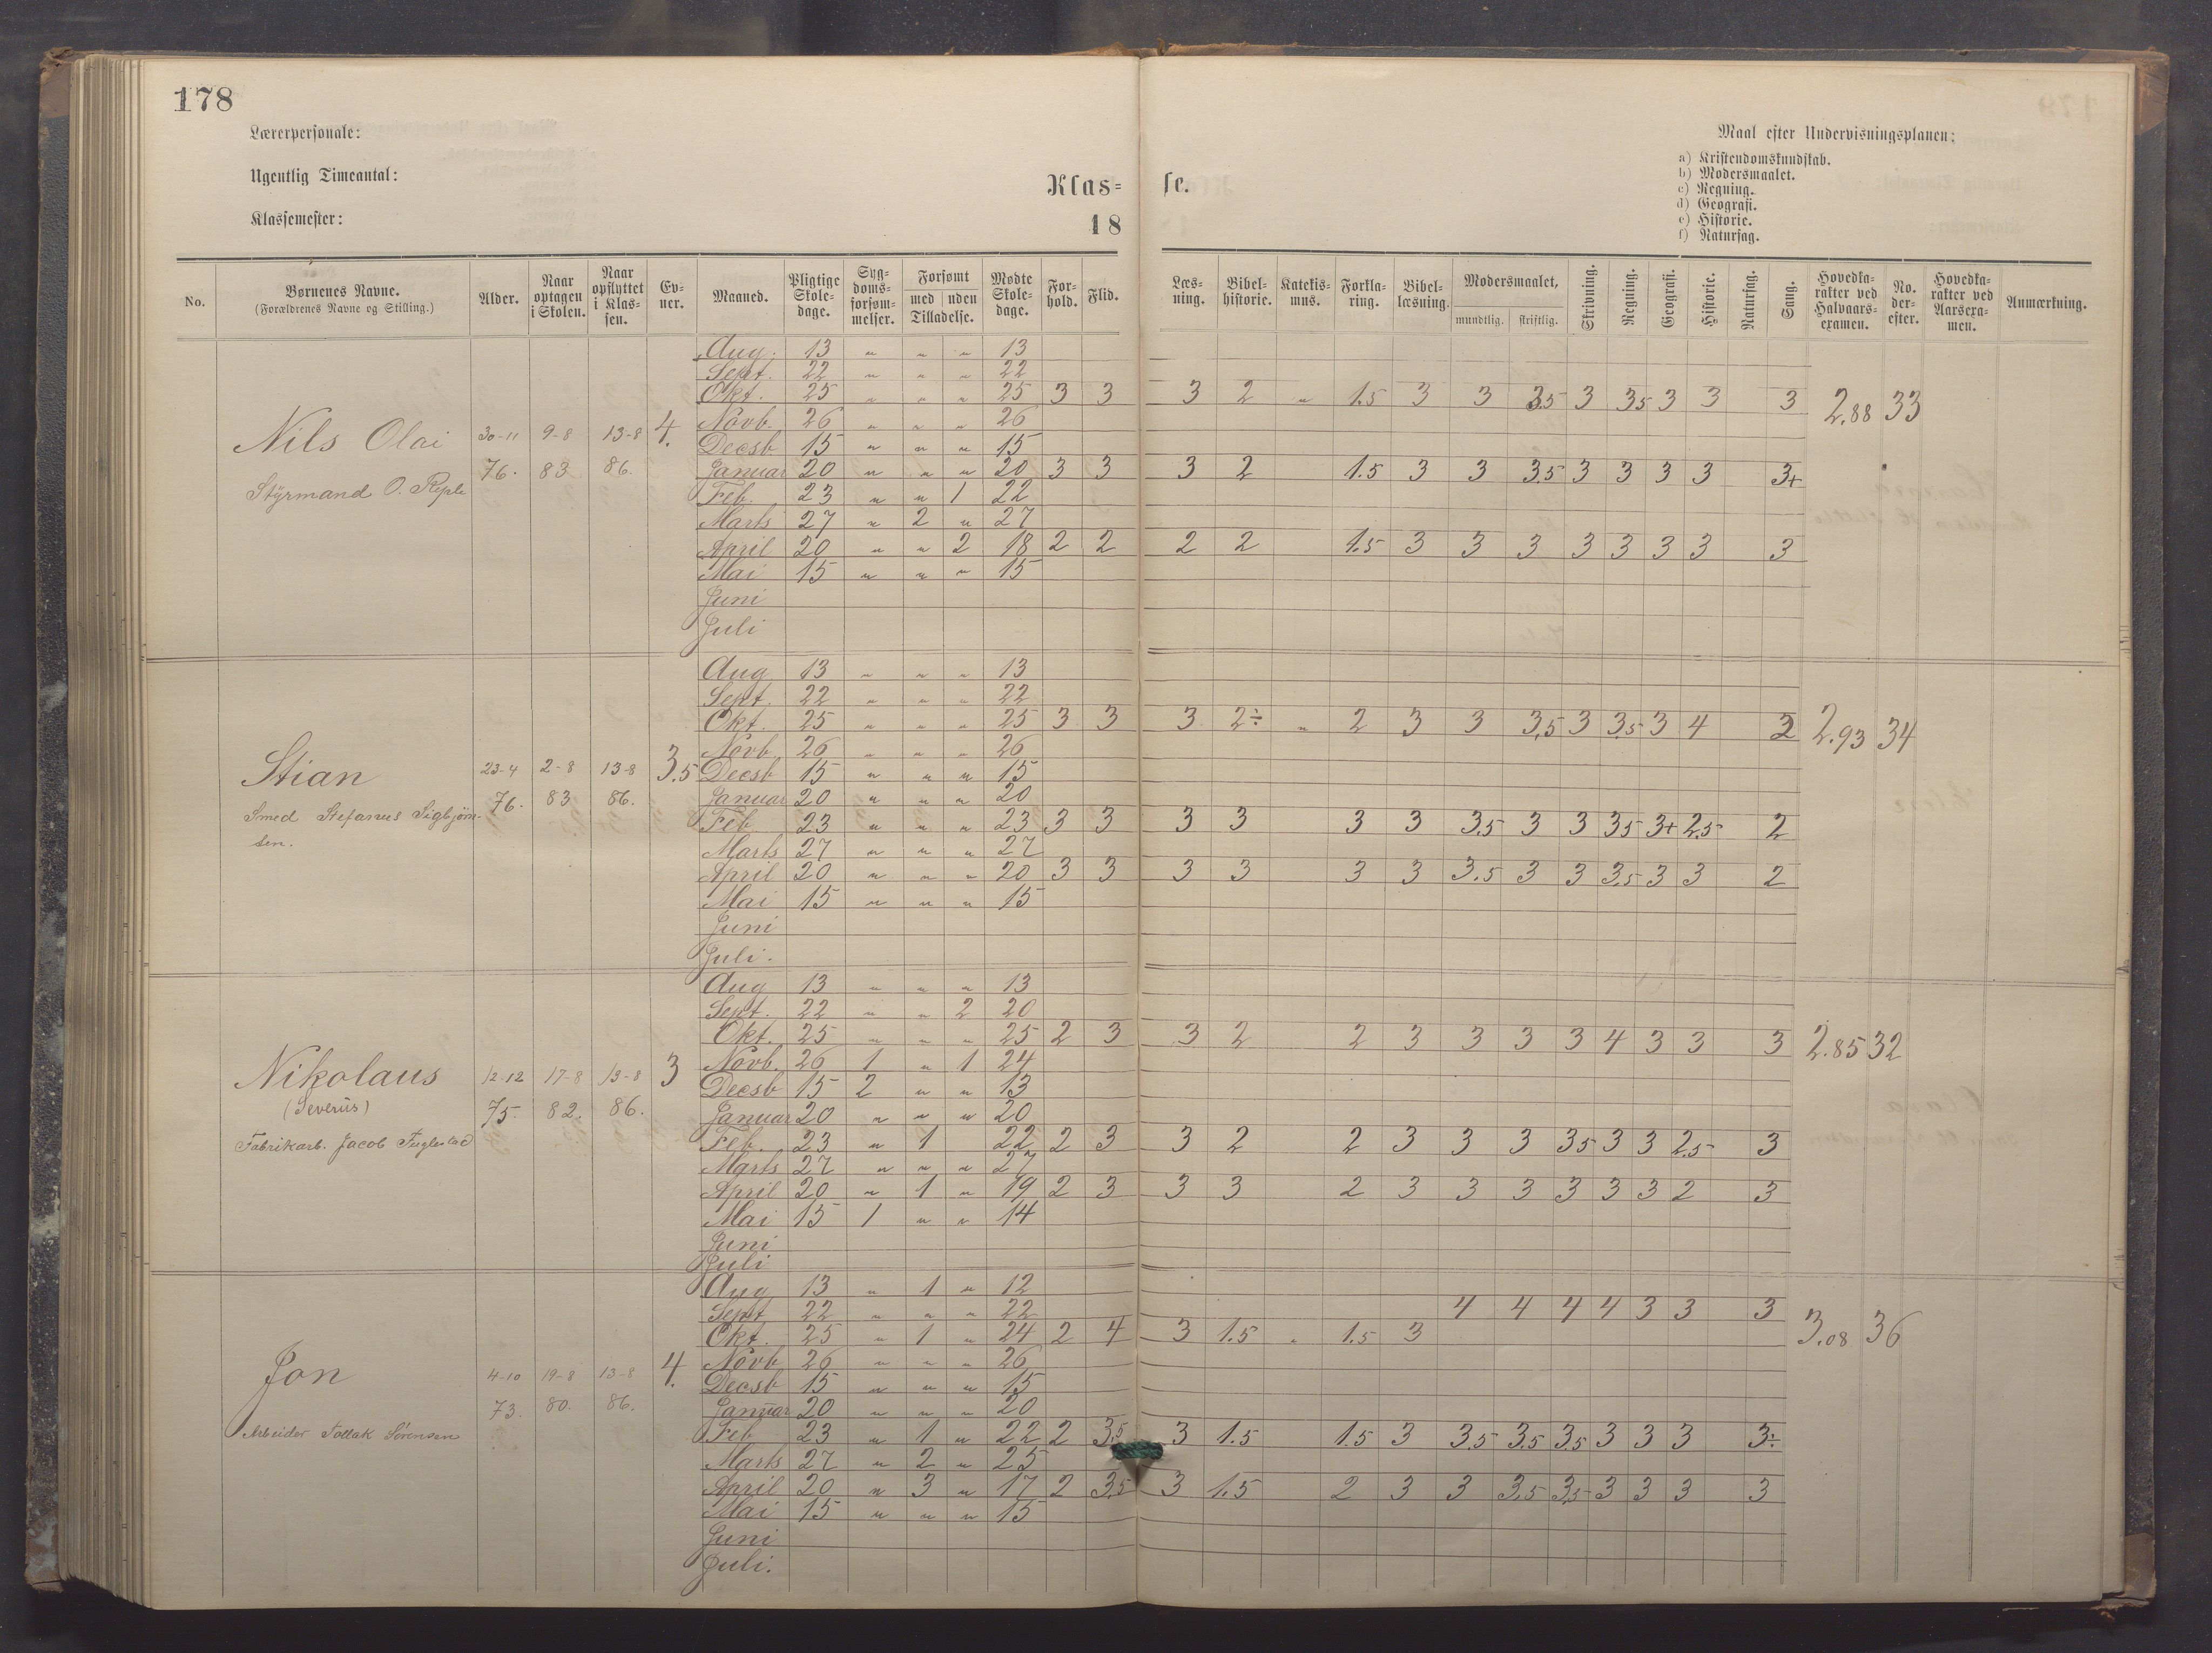 178
Lærerpersonale:
Ugentlig Timeantal:
Klassemester:
Klas=
se.
18
Maal efter Undervisningsplanen:
a) Kristendomskundskab.
b) Modersmaalet.
c) Regning.
d) Geografi.
e) Historie.
f) Naturfag.
No. Børnenes Navne. (Forældrenes Navne og Stilling.) Alder. Naar optagen i Skolen. Naar opflyttet i Klassen. Evner. Maaned. Pligtige Skoledage. Sygdomsforsømmelser. Forsømt med uden Tilladelse. Mødte Skoledage. Forhold. Flid. Læsning. Bibelhistorie. Katekismus. Forklaring. Bibellæsning. Modersmaalet, mundtlig. skriftlig. Skrivning. Regning. Geografi. Historie. Naturfag. Sang. Hovedkarakter ved Halvaarsexamen. No. derefter. Hovedkarakter ved Aarsexamen. Anmærkning.
Nils Olai
Styrmand O.
30-11 76. 9-8 83 13-8 86. 4.
Aug. 13 " " " 13
Sept. 22 " " " 22
Okt. 25 " " " 25 3 3 3 2 " 1.5 3 3 3.5 3 3.5 3 3 3 2.88 33
Novb. 26 " " " 26
Decsb 15 " " " 15
Januar 20 " " " 20 3 3 3 2 1.5 3 3 3.5 3 3 3 3 3+
Feb. 23 " " 1 22
Marts 27 " 2 " 27
April 20 " " 2 18 2 2 2 2 1.5 3 3 3 3 3 3 3 3
Mai 15 " " " 15
Juni
Juli
Stian
Smed Stefanus Sigbjørn-
sen.
23-4 76. 2-8 83 13-8 86. 3.5
Aug 13 " " " 13
Sept. 22 " " " 22
Okt. 25 " " " 25 3 3 3 2÷ " 2 3 3 3,5 3 3.5 3 4 2 2.93 34
Novb 26 " " " 26
Decsb 15 " " " 15
Januar 20 " " " 20
Feb 23 " " " 23 3 3 3 3 3 3 3.5 3 3 3.5 3+ 2.5 2
Marts 27 " " " 27
April 20 " " " 20 3 3 3 3 3 3 3.5 3 3 3.5 3 3 2
Mai 15 " " " 15
Juni
Juli.
Nikolaus
(Severüs)
Fabrikarb. Jacob Fuglestad
12-12 75. 17-8 82. 13-8 86. 3
Aug 13 " " " 13
Sept. 22 " " 2 20
Okt. 25 " " " 25 2 3 3 2 2 3 3 3 3 4 3 3 3 2.85 32
Novb. 26 1 " 1 24
Decsb 15 2 " " 13
Januar 20 " " " 20
Feb. 23 " 1 22 2 3 3 2 2 3 3 3 3.5 3 3 2.5 3
Marts 27 " " " 27
April 20 " 1 " 19 2 3 3 3 2 3 3 3 3 3 3 2 3
Mai 15 1 " " 14
Juni
Juli
Jon
Arbeider Tollak Sörensen
4-10 73. 19-8 80. 13-8 86. 4.
Aug 13 " 1 " 12
Sept 22 " " " 22 4 4 4 4 3 3 3
Okt. 25 " 1 " 24 2 4 3 1.5 " 1.5 3 3.08 36
Novb 26 " " " 26
Decsb 15 " " " 15
Januar 20 " " " 20
Feb 23 " 1 " 22 2 3,5 3 1.5 1.5 3 3.5 3.5 3.5 3 3 3 3÷
Marts 27 " 2 " 25
April 20 " 3 " 17 2 3,5 3 1.5 2 3 3 3,5 3,5 3 3 3 3
Mai 15 " " " 15
Juni
Juli.